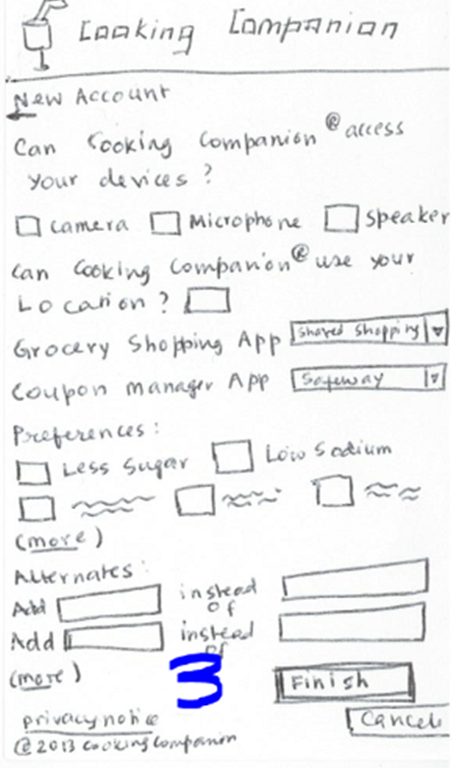 Cooking Companion
New Account
Can Cooking Companion® access
your devices?
Camera Microphone Speaker
Can Cooking Companion® use your
Location?
Grocery Shopping App Shared Shopping
Coupon manager App Safeway
Preferences:
Less Sugar Low Sodium
(more)
Alternates:
Add instead of
Add instead of
(more)
3
Finish
Cancel
privacy notice
@ 2013 Cooking Companion